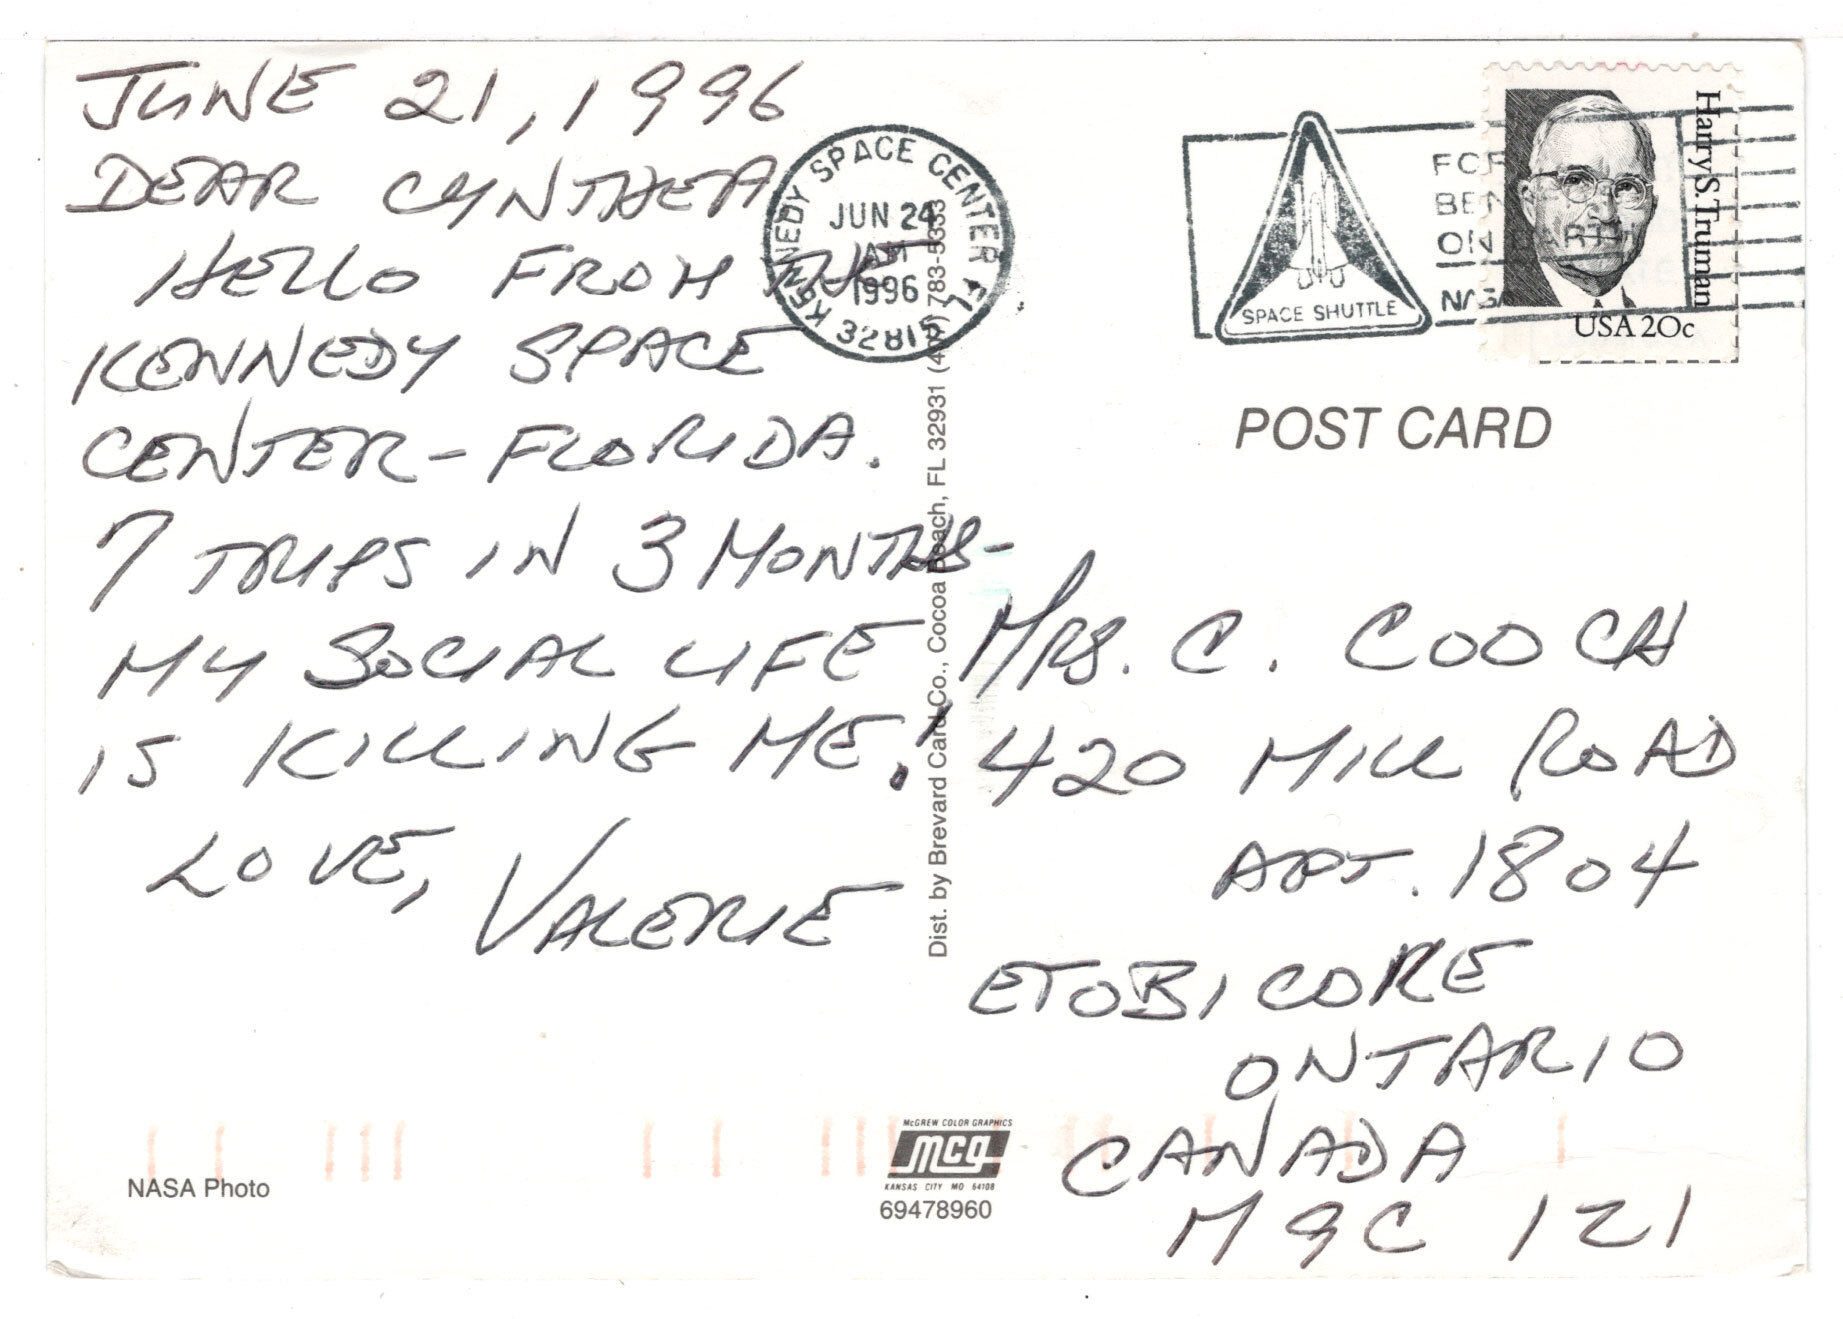 JUNE 21, 1996
DEAR CYNTHEA
HELLO FROM THE
KENNEDY SPACE
CENTER - FLORIDA.
7 TRIPS IN 3 MONTHS -
MY SOCIAL LIFE
IS KILLING ME!
LOVE, VALERIE
KENNEDY SPACE CENTER FL
JUN 24
AM
1996
32815
SPACE SHUTTLE
FOR
ON EARTH
NASA
Harry S. Truman
USA 20c
POST CARD
Dist. by Brevard Card Co., Cocoa Beach, FL 32931 (407) 783-5353
MRS. C. COOCH
420 MILL ROAD
APT. 1804
ETOBICOKE
ONTARIO
CANADA
M9C 1Z1
NASA Photo
McGREW COLOR GRAPHICS
mcg
KANSAS CITY MO 64108
69478960